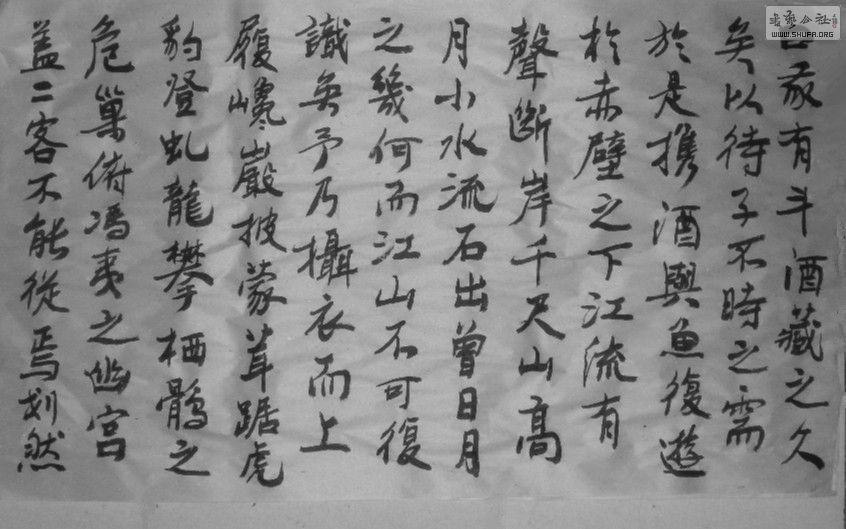 我有斗酒藏之久
矣以待子不時之需
於是攜酒與魚復遊
於赤壁之下江流有
聲斷岸千尺山高
月小水流石出曾日月
之幾何而江山不可復
識矣予乃攝衣而上
履巉巖披蒙茸踞虎
豹登虬龍攀栖鶻之
危巢俯馮夷之幽宮
蓋二客不能從焉划然
書藝公社
WWW.SHUFA.ORG